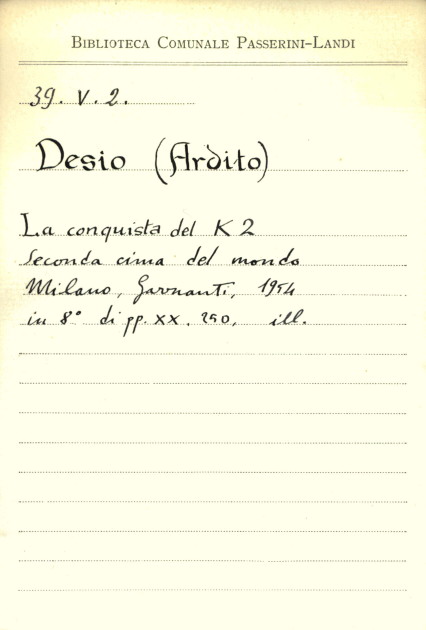 BIBLIOTECA COMUNALE PASSERINI-LANDI
39. V. 2.
Desio (Ardito)
La conquista del K 2
Seconda cima del mondo
Milano, Garzanti, 1954
in 8° di pp. XX. 250, ill.